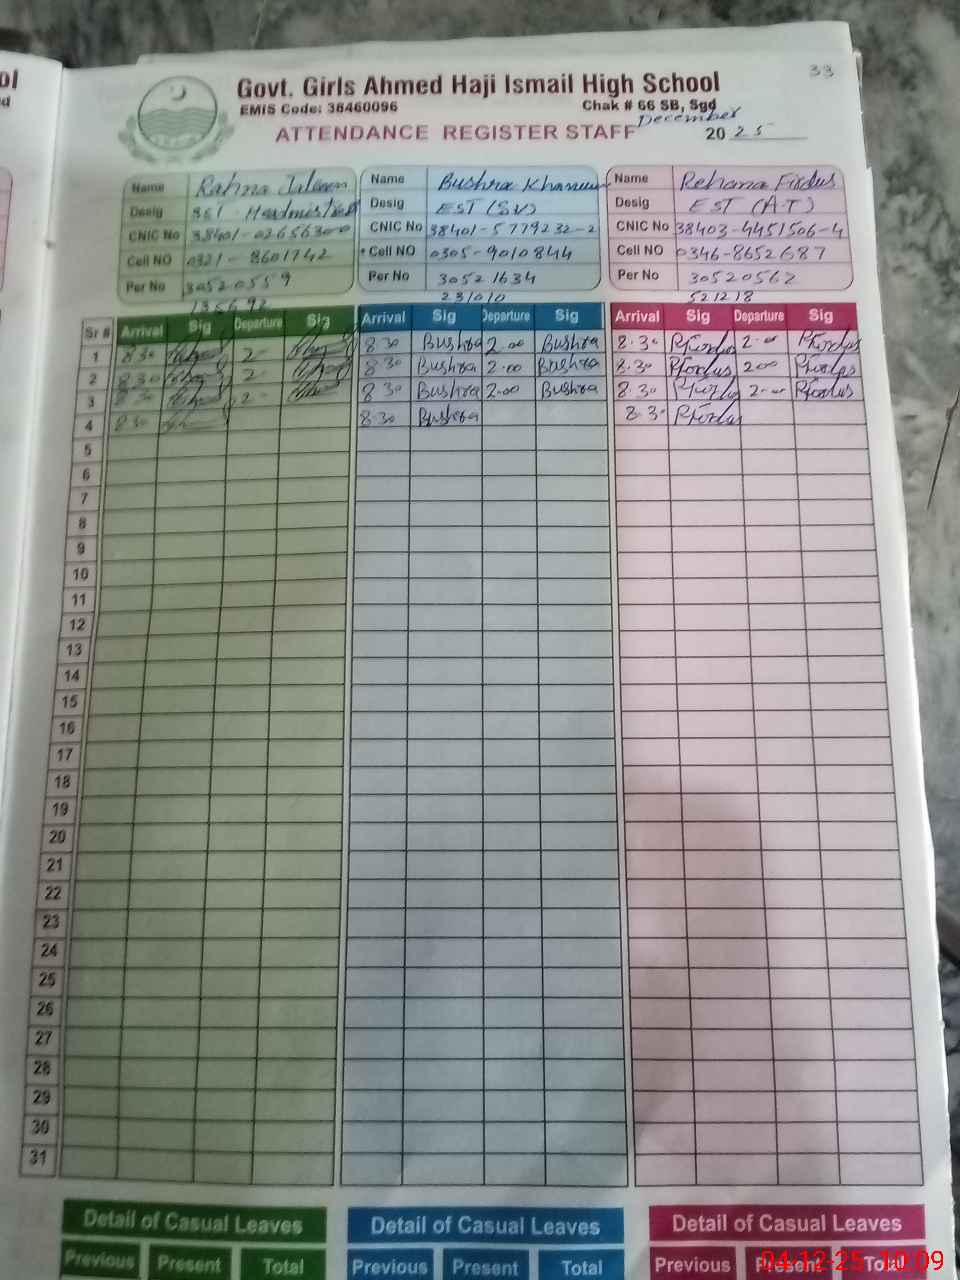 ol
d
33
Govt. Girls Ahmed Haji Ismail High School
EMIS Code: 38460096 Chak # 66 SB, Sgd
December
ATTENDANCE REGISTER STAFF 2025
Name Name Bushra Khanum Name Rehana Firdus
Desig SST Desig EST (SV) Desig EST (A.T)
CNIC No CNIC No 38401-5779232-2 CNIC No 38403-4451506-4
Cell NO 0321-8601742 Cell NO 0305-9010844 Cell NO 0346-8652687
Per No 30520559 Per No 30521634 Per No 30520562
135692 231010 521218
Sr # Arrival Sig Departure Sig Arrival Sig Departure Sig Arrival Sig Departure Sig
1 8 30 2- 8 30 Bushra 2.00 Bushra 8.30 Rfirdus 2.00 Rfirdus
2 8 30 2- 8 30 Bushra 2.00 Bushra 8.30 Rfirdus 2.00 Rfirdus
3 8 30 2- 8 30 Bushra 2.00 Bushra 8.30 Rfirdus 2.00 Rfirdus
4 8 30 8.30 Bushra 8.30 Rfirdus
5
6
7
8
9
10
11
12
13
14
15
16
17
18
19
20
21
22
23
24
25
26
27
28
29
30
31
Detail of Casual Leaves Detail of Casual Leaves Detail of Casual Leaves
Previous Present Total Previous Present Total Previous Present Total
04-12-25 10:09